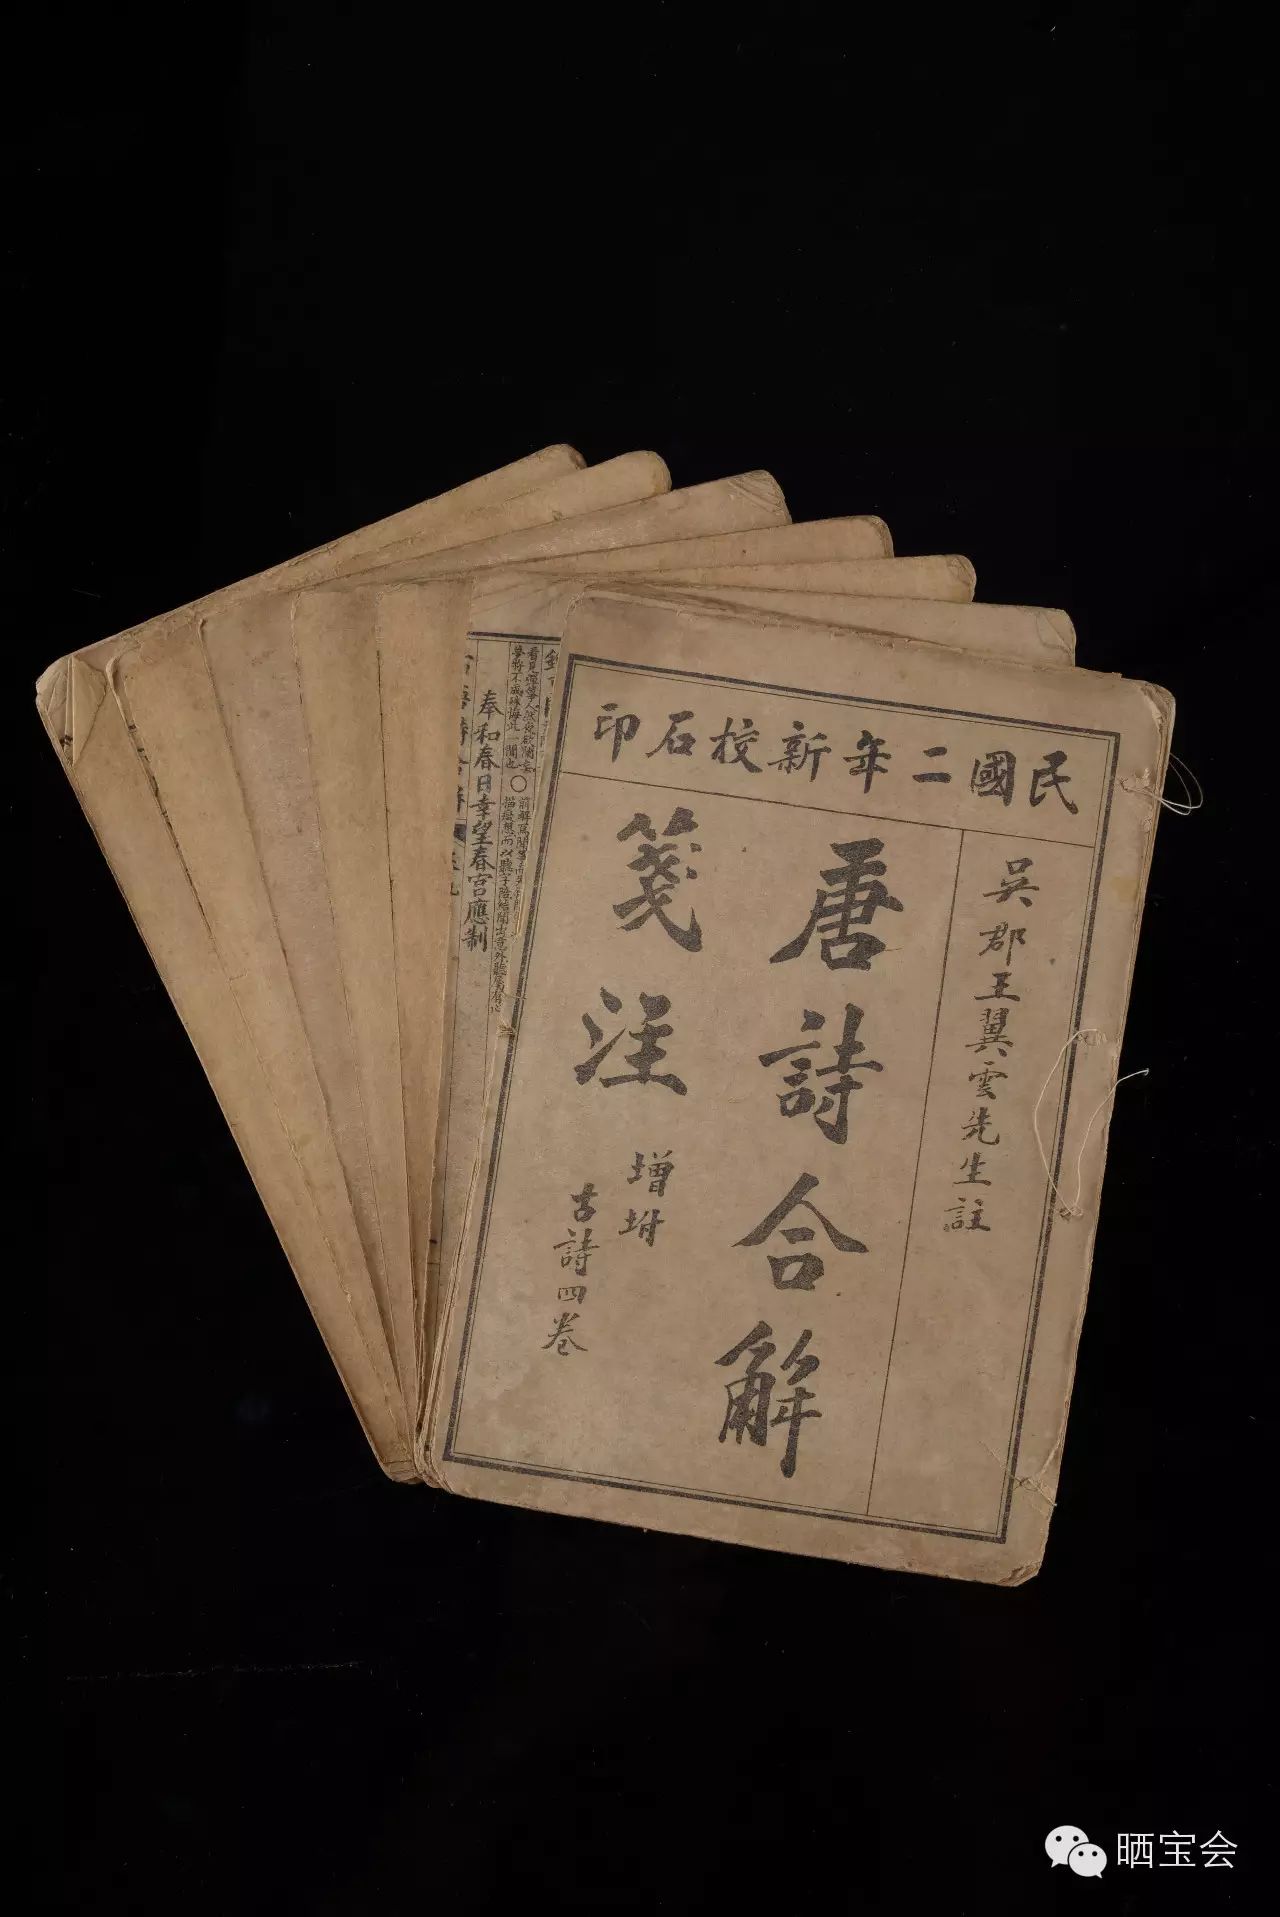 民國二年新校石印
吳郡王翼雲先生註
唐詩合解
箋注
增坿
古詩四卷
奉和春日幸望春宮應制
晒宝会